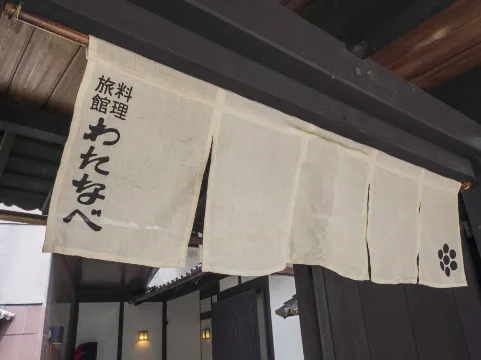 料理
旅館
わたなべ